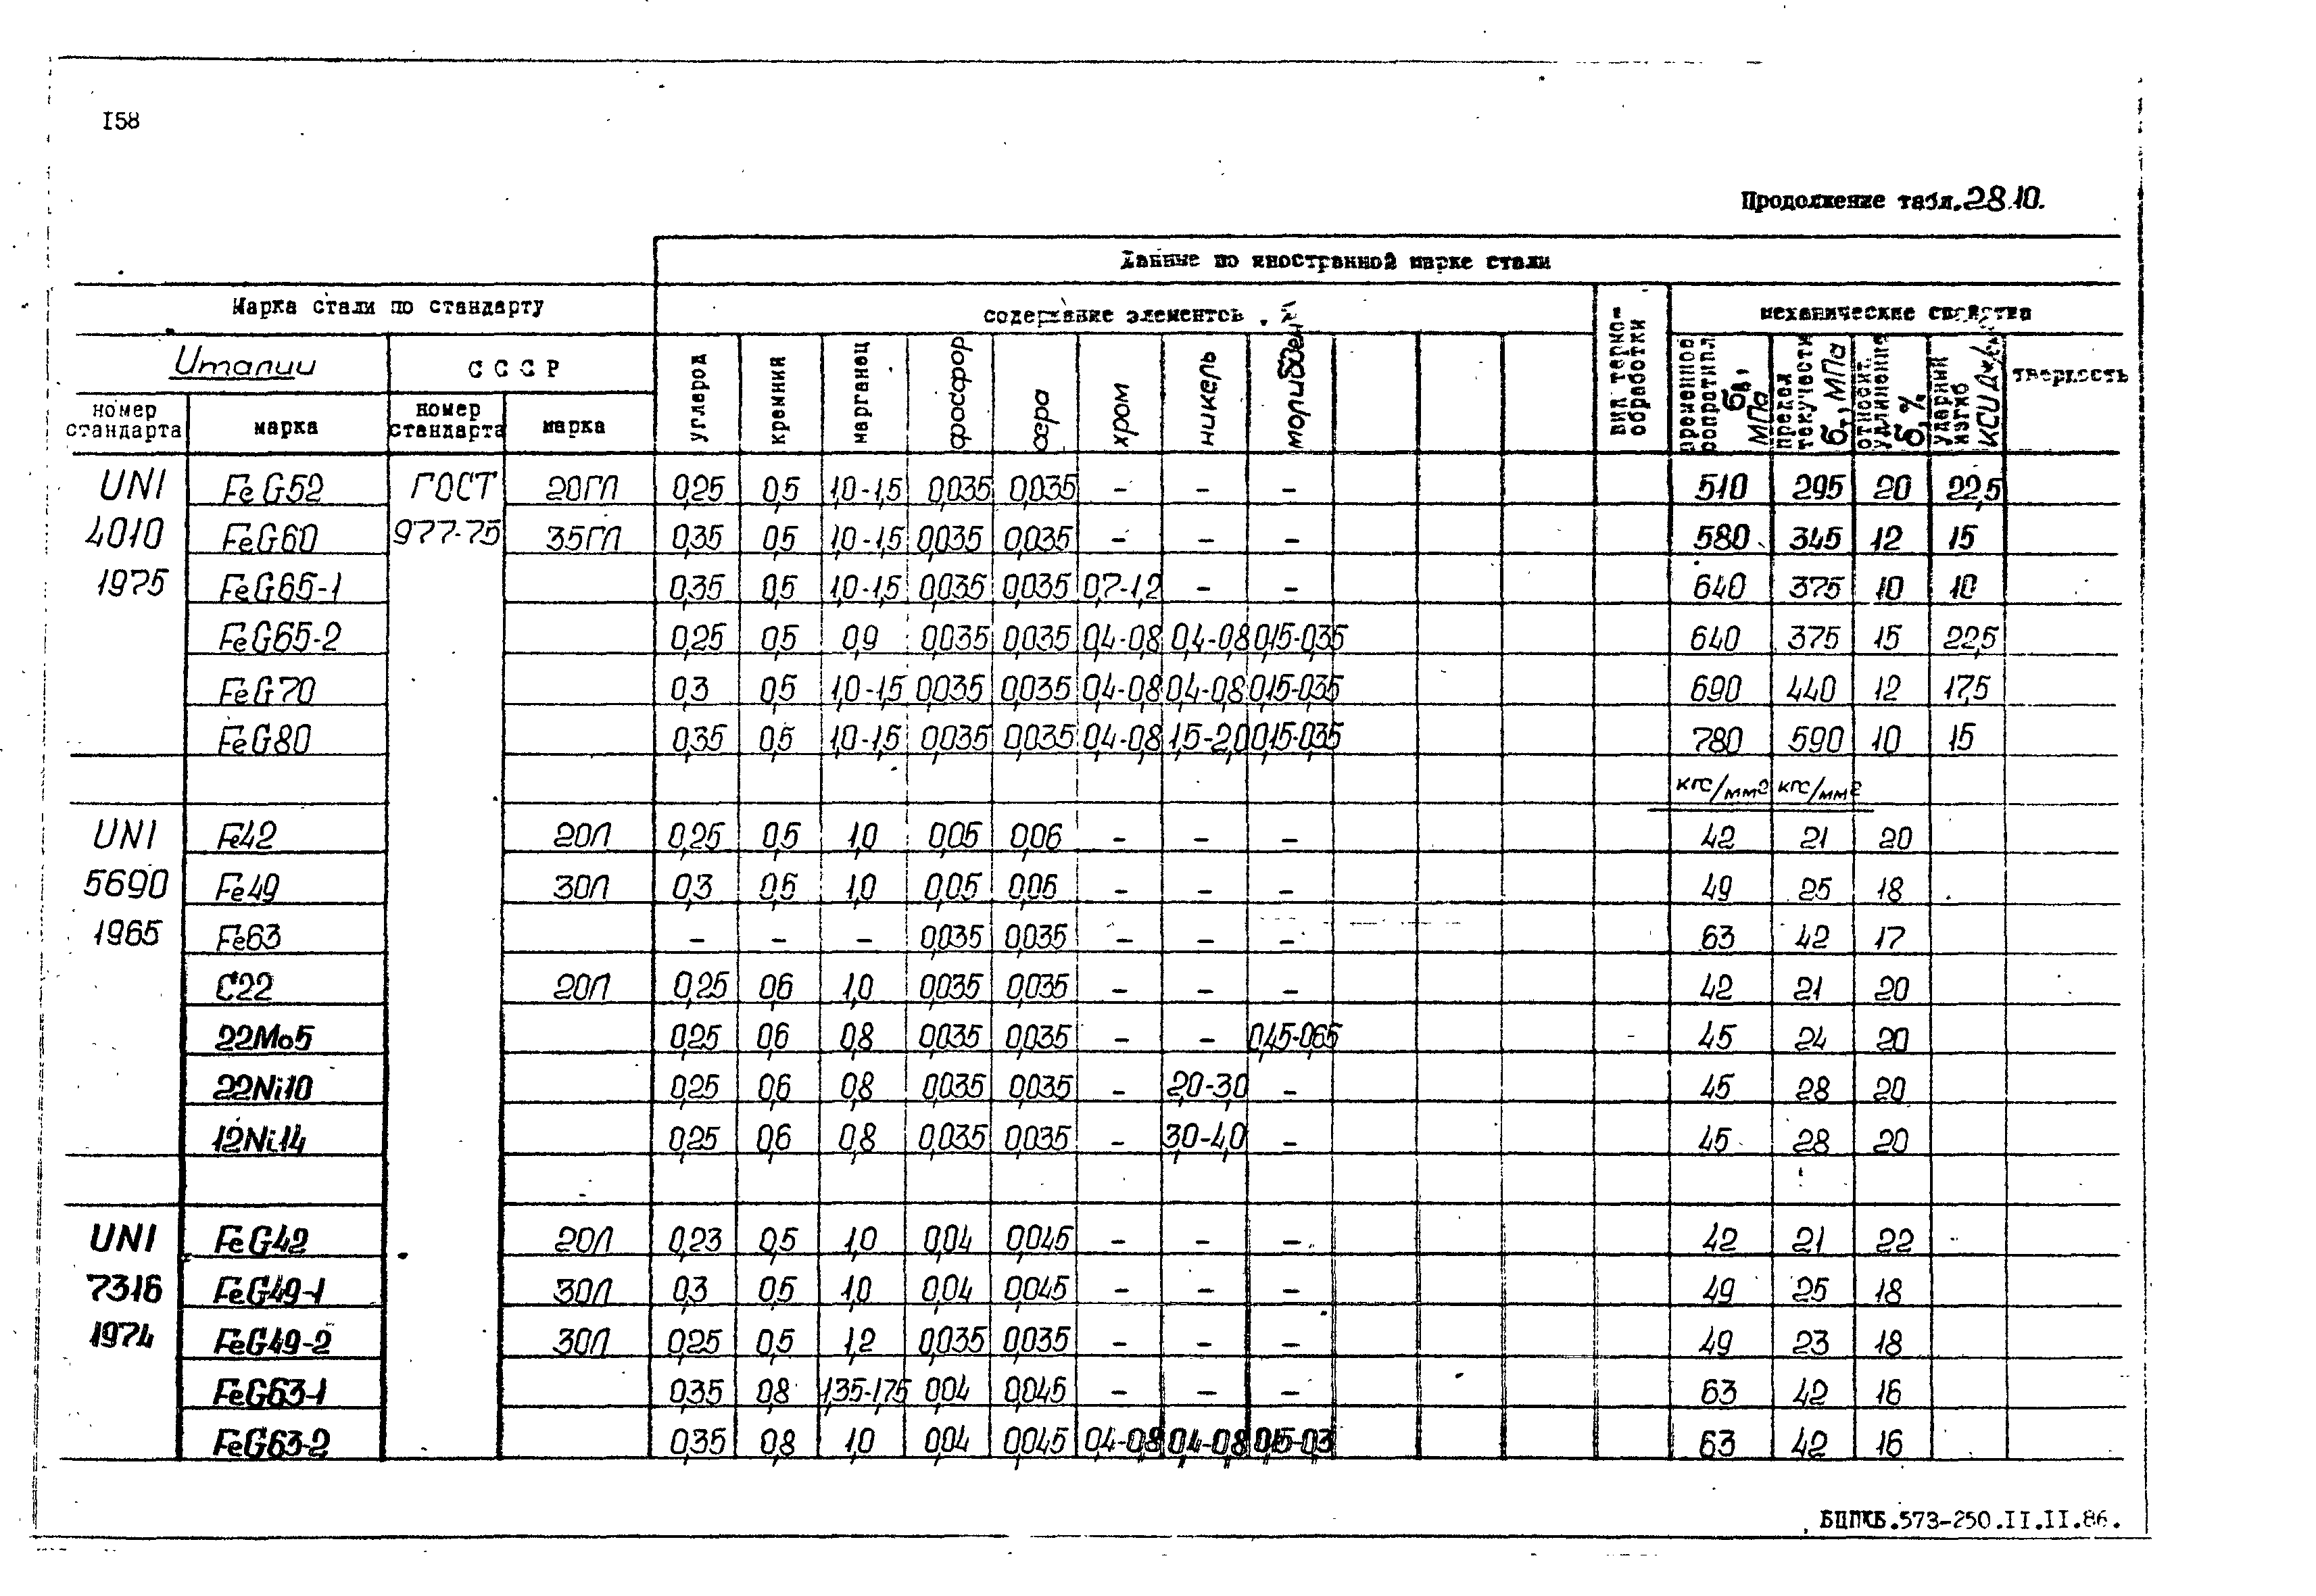 I58
Продолжение табл.28.10.
Данные по иностранной марке стали
Марка стали по стандарту содержание элементов, % вид термо-обработки механические свойства
Италии СССР углерод кремния марганец фосфор сера хром никель молибден временное сопротивл. σв, МПа предел текучести σт, МПа относит. удлинение δ, % ударный изгиб KCU твердость
номер стандарта марка номер стандарта марка
UNI FeG52 ГОСТ 20ГЛ 0,25 0,5 1,0-1,5 0,035 0,035 – – – 510 295 20 22,5
4010 FeG60 977-75 35ГЛ 0,35 0,5 1,0-1,5 0,035 0,035 – – – 580 345 12 15
1975 FeG65-1 0,35 0,5 1,0-1,5 0,035 0,035 0,7-1,2 – – 640 375 10 10
FeG65-2 0,25 0,5 0,9 0,035 0,035 0,4-0,8 0,4-0,8 0,15-0,35 640 375 15 22,5
FeG70 0,3 0,5 1,0-1,5 0,035 0,035 0,4-0,8 0,4-0,8 0,15-0,35 690 440 12 17,5
FeG80 0,35 0,5 1,0-1,5 0,035 0,035 0,4-0,8 1,5-2,0 0,15-0,35 780 590 10 15
кгс/мм2 кгс/мм2
UNI Fe42 20Л 0,25 0,5 1,0 0,05 0,06 – – – 42 21 20
5690 Fe49 30Л 0,3 0,5 1,0 0,05 0,05 – – – 49 25 18
1965 Fe63 – – – 0,035 0,035 – – – 63 42 17
C22 20Л 0,25 0,6 1,0 0,035 0,035 – – – 42 21 20
22Mo5 0,25 0,6 0,8 0,035 0,035 – – 0,45-0,65 45 24 20
22Ni10 0,25 0,6 0,8 0,035 0,035 – 2,0-3,0 – 45 28 20
12Ni14 0,25 0,6 0,8 0,035 0,035 – 3,0-4,0 – 45 28 20
UNI FeG42 20Л 0,23 0,5 1,0 0,04 0,045 – – – 42 21 22
7316 FeG49-1 30Л 0,3 0,5 1,0 0,04 0,045 – – – 49 25 18
1974 FeG49-2 30Л 0,25 0,5 1,2 0,035 0,035 – – – 49 23 18
FeG63-1 0,35 0,8 1,35-1,75 0,04 0,045 – – – 63 42 16
FeG63-2 0,35 0,8 1,0 0,04 0,045 0,4-0,8 0,4-0,8 0,15-0,3 63 42 16
БЦПКБ.573-250.II.II.86.